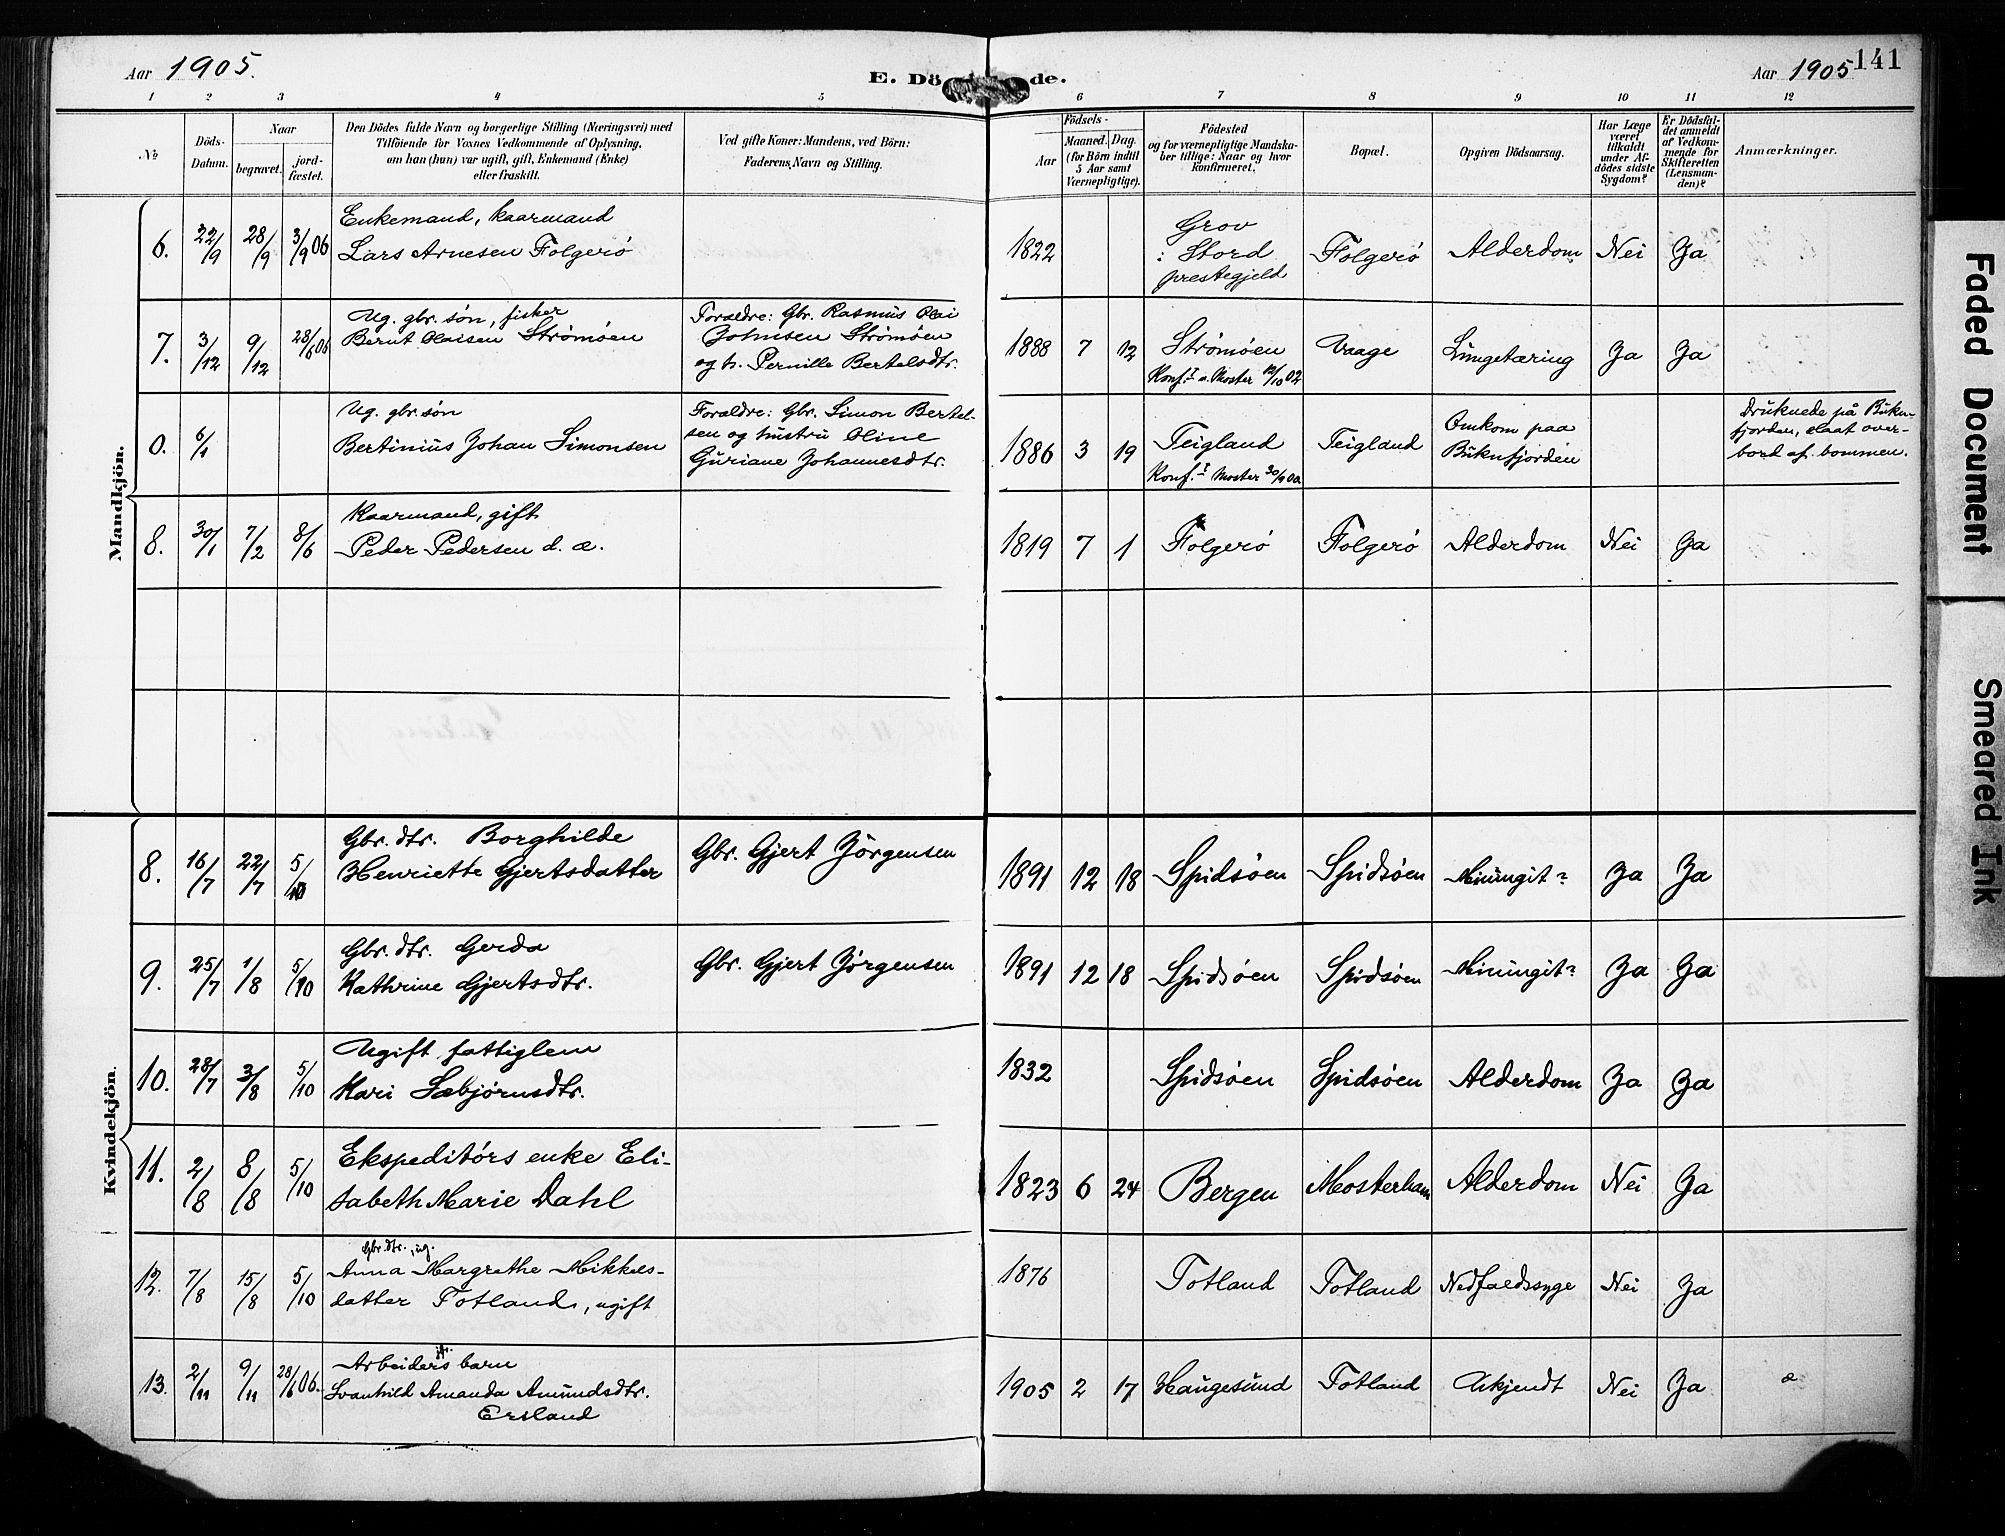 Aar 1905.
E. Dö de.
Aar 1905
141
1 2 3 4 5 6 7 8 9 10 11 12
No
Döds-
Datum.
Naar
begravet.
jord-
fæstet.
Den Dödes fulde Navn og borgerlige Stilling (Næringsvei) med
Tilföiende for Voxnes Vedkommende af Oplysning,
om han (hun) var ugift, gift, Enkemand (Enke)
eller fraskilt.
Ved gifte Koner: Mandens, ved Börn:
Faderens, Navn og Stilling.
Födsels-
Aar
Maaned. Dag.
(for Börn indtil
5 Aar samt
Værnepligtige).
Födested
og for værnepligtige Mandska-
ber tillige: Naar og hvor
konfirmeret.
Bopæl.
Opgiven Dödsaarsag.
Har Læge
været
tilkaldt
under Af-
dödes sidste
Sygdom?
Er Dödsfal-
det anmeldt
af Vedkom-
mende for
Skifteretten
(Lensman-
den)?
Anmærkninger.
Mandkjön.
6. 22/9 28/9 3/9 06
Enkemand, kaarmand
Lars Arnesen Folgerö
1822
Grov
: Stord
prestegjeld
Folgerö Alderdom Nei Ja
7. 3/12 9/12 28/6 06
Ug. gbr. søn, fisker
Bernt Olaisen Strømøen
Forældre: Gbr. Rasmus Olai
Johnsen Strømøen
og h. Pernille Bertelsdtr.
1888 7 12
Strømøen
Konf. i Moster 12/10 02
Vaage Lungetæring Ja Ja
0. 6/1
Ug. gbr. søn
Bertinius Johan Simonsen
Forældre: Gbr. Simon Bertel-
sen og hustru Oline
Guriane Johannesdtr.
1886 3 19
Teigland
Konf. i Moster 30/9 00
Teigland
Omkom paa
Buknfjorden
Druknede på Bukn-
fjorden, slaat over-
bord af bommen.
8. 30/1 7/2 8/6
Kaarmand, gift
Peder Pedersen d. æ.
1819 7 1 Folgerö Folgerö Alderdom Nei Ja
Kvindekjön.
8. 16/7 22/7 5/10
Gbr. dtr. Borghilde
Henriette Gjertsdatter
Gbr. Gjert Jörgensen
1891 12 18 Spidsøen Spidsøen Miningit? Ja Ja
9. 25/7 1/8 5/10
Gbr. dtr. Gerda
Kathrine Gjertsdtr.
Gbr. Gjert Jørgensen
1891 12 18 Spidsøen Spidsøen Miningit? Ja Ja
10. 28/7 3/8 5/10
Ugift fattiglem
Kari Sæbjørnsdtr.
1832 Spidsøen Spidsøen Alderdom Ja Ja
11. 2/8 8/8 5/10
Ekspeditörs enke Eli-
sabeth Marie Dahl
1823 6 24 Bergen Mosterham Alderdom Nei Ja
12. 7/8 15/8 5/10
Gbr. dtr., ug.
Anna Margrethe Mikkels-
datter Totland, ugift
1876 Totland Totland Nedfaldssyge Nei Ja
13. 2/11 9/11 28/6 06.
Arbeiders barn
Svanhild Amanda Amundsdtr.
Ersland
1905 2 17 Haugesund Totland Ukjendt Nei Ja
Faded Document
Smeared Ink